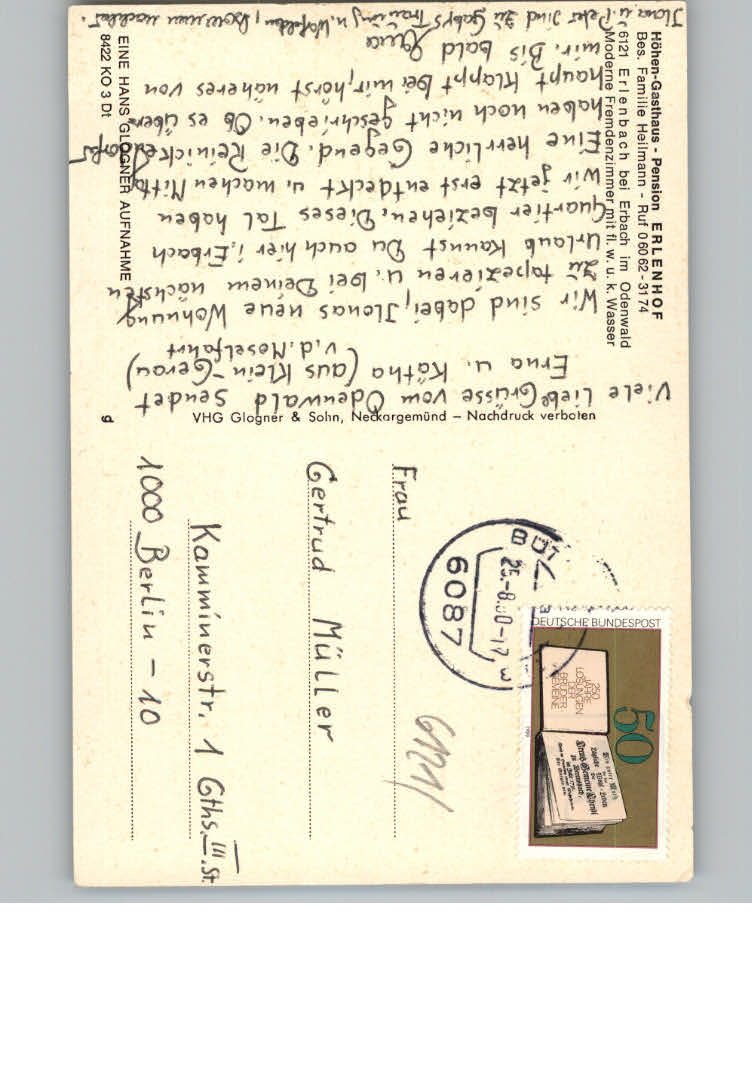 Höhen-Gasthaus - Pension ERLENHOF
Bes. Familie Heilmann - Ruf 0 60 62 - 31 74
6121 Erlenbach bei Erbach im Odenwald
Moderne Fremdenzimmer mit fl. w. u. k. Wasser
Viele Liebe Grüsse vom Odenwald Sendet
Erna u. Kätha (aus Klein-Gerau)
v.d. Moselfahrt
Wir sind dabei, Ilonas neue Wohnung
zu tapezieren u. bei Deinem nächsten
Urlaub kannst Du auch hier i. Erbach
Quartier beziehen. Dieses Tal haben
wir jetzt erst entdeckt u. machen
Eine herrliche Gegend. Die
haben noch nicht geschrieben. Ob es über=
haupt klappt bei mir, hörst näheres von
mir. Bis bald
Ilona u. Peter sind zu Gabys Trauung n.
EINE HANS GLOGNER AUFNAHME
8422 KO 3 Dt
VHG Glogner & Sohn, Neckargemünd – Nachdruck verboten
g
DEUTSCHE BUNDESPOST
50
250
JAHRE
LOSUNGEN
DER
BRÜDER-
GEMEINE
1980
6087
25.-8.80-17
6121
Frau
Gertrud Müller
Kamminerstr. 1 Gths. III. St.
1000 Berlin - 10